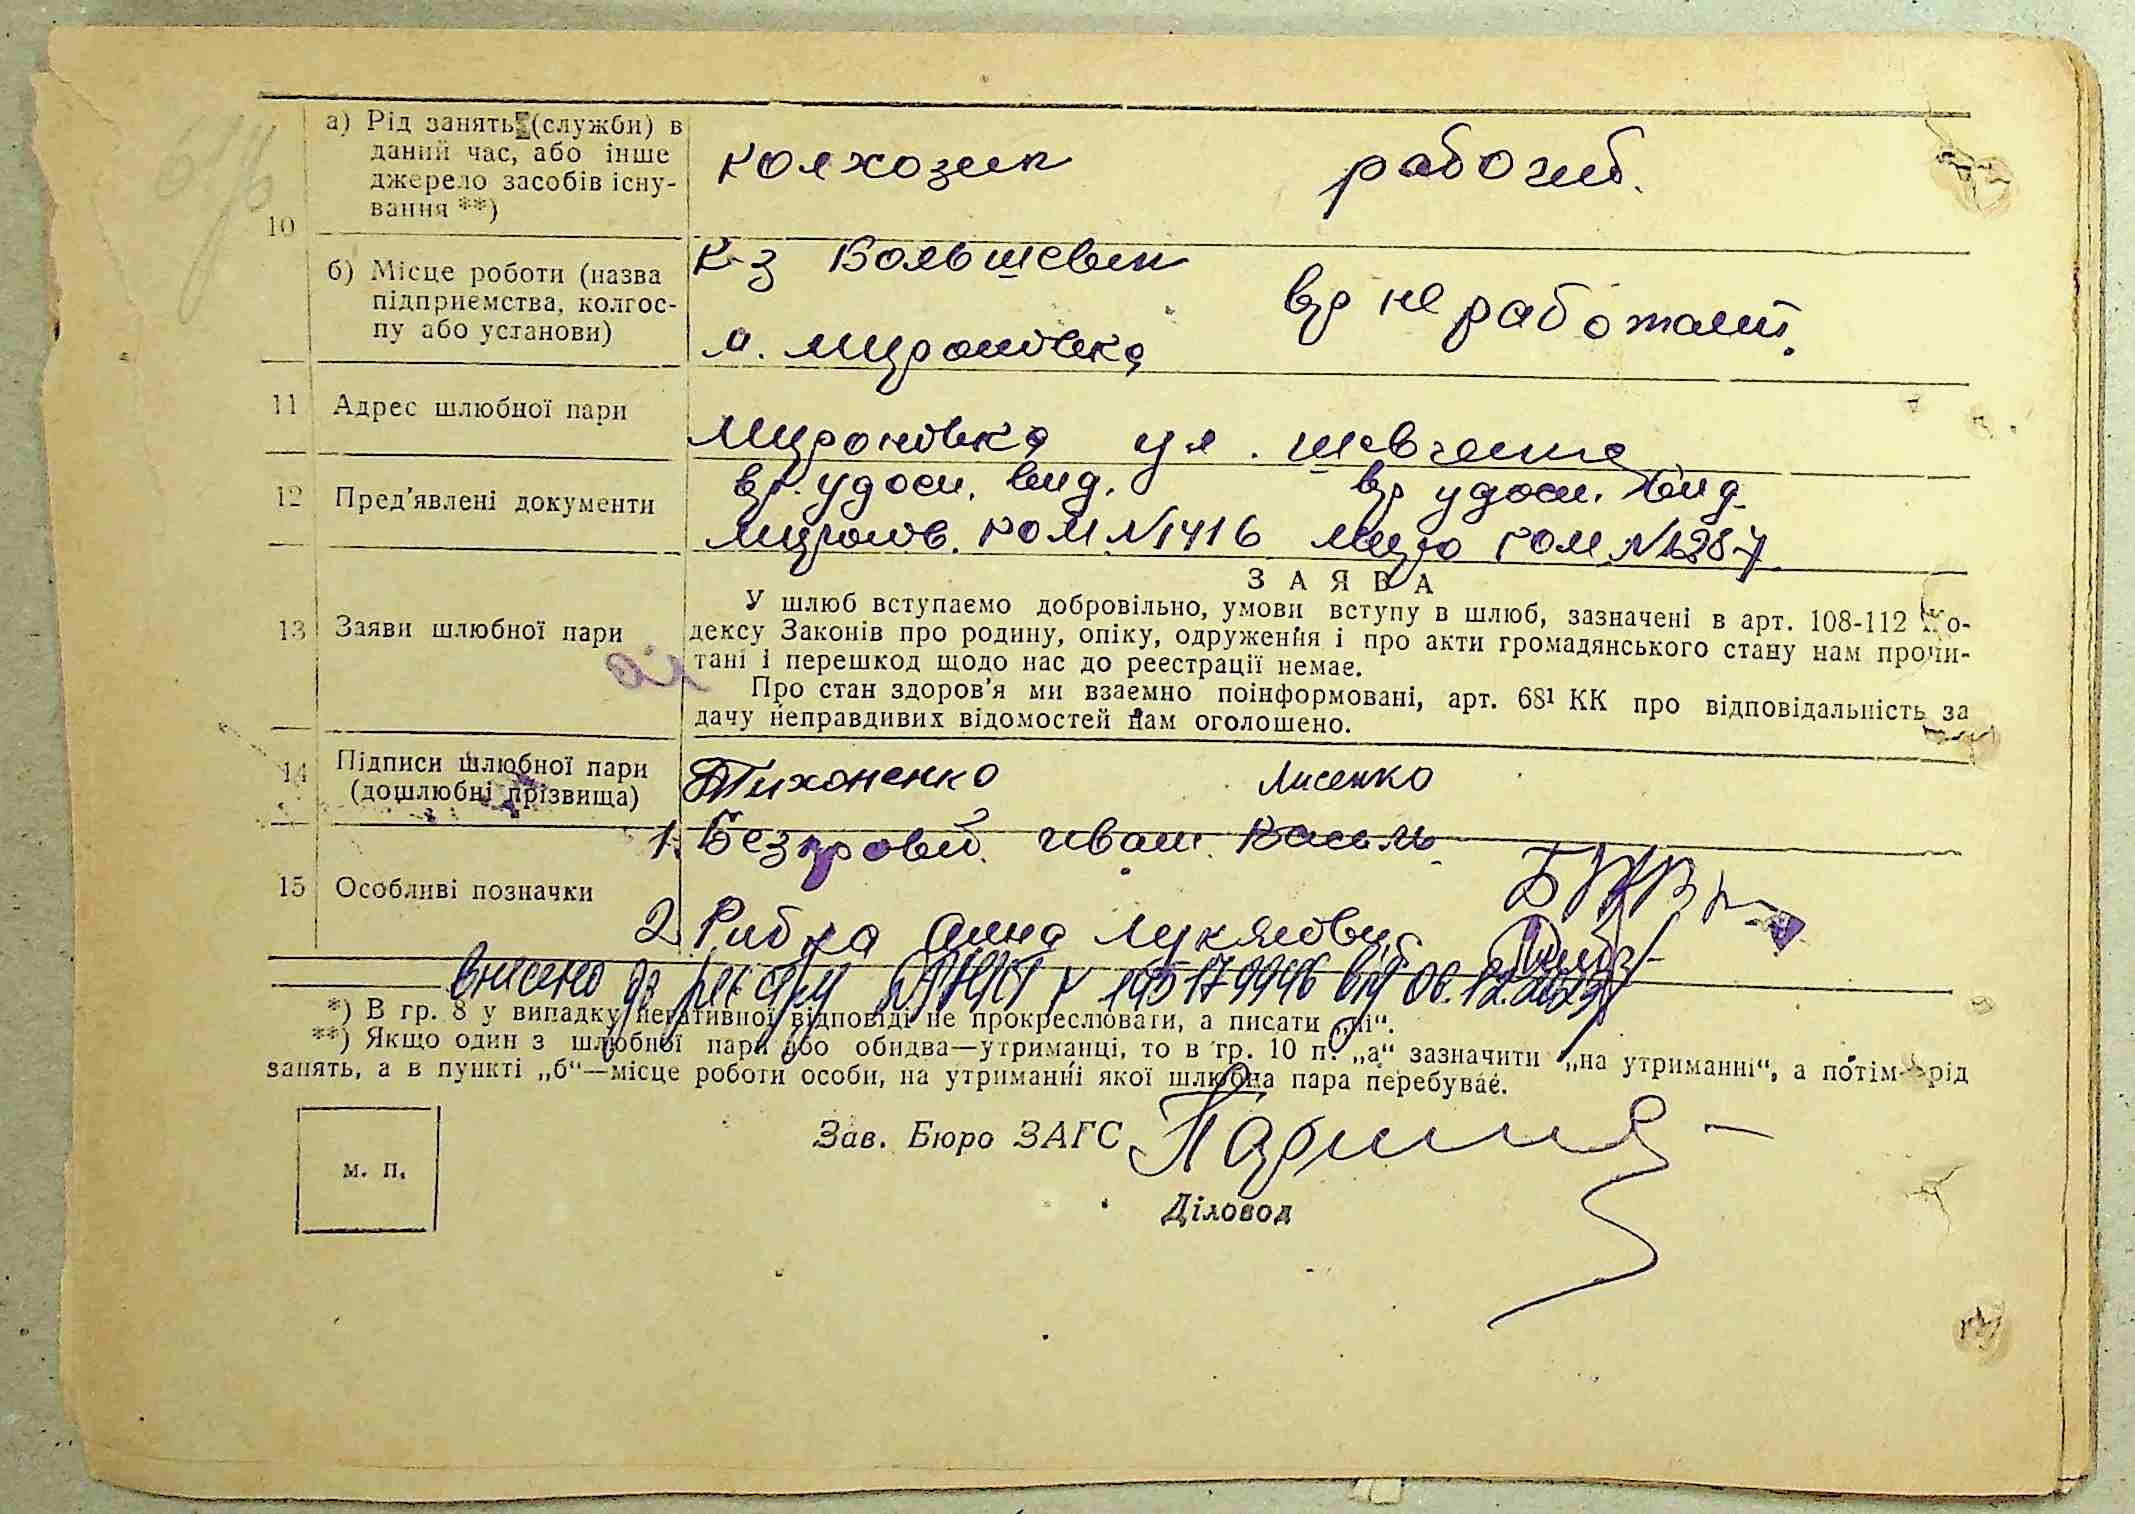 а) Рід занять (служби) в
даний час, або інше
джерело засобів існу-
вання **)
колхозник рабочий.
10
б) Місце роботи (назва
підприємства, колгос-
пу або установи)
к-з Большевик
вр не работает.
м. Мироновка
11 Адрес шлюбної пари
Мироновка ул. Шевченка
12 Пред'явлені документи
вр. удост. вид. вр удост. вид.
Миронов. РОМ №1416 Миро РОМ №1287
ЗАЯВА
13 Заяви шлюбної пари
У шлюб вступаємо добровільно, умови вступу в шлюб, зазначені в арт. 108-112 Ко-
дексу Законів про родину, опіку, одруження і про акти громадянського стану нам прочи-
тані і перешкод щодо нас до реестрації немає.
Про стан здоров'я ми взаємно поінформовані, арт. 68¹ КК про відповідальність за
дачу неправдивих відомостей нам оголошено.
14 Підписи шлюбної пари
(дошлюбні прізвища)
Тихоненко Лисенко
15 Особливі позначки
1. Безпровий. иван. Василь
2. Рибка Анна Лукяновн
внесено до реєстру від 06.12.
*) В гр. 8 у випадку негативної відповіді не прокреслювати, а писати „ні“.
**) Якщо один з шлюбної пари або обидва—утриманці, то в гр. 10 п. „а“ зазначити „на утриманні“, а потім рід
занять, а в пункті „б“—місце роботи особи, на утриманні якої шлюбна пара перебуває.
Зав. Бюро ЗАГС
м. п.
Діловод